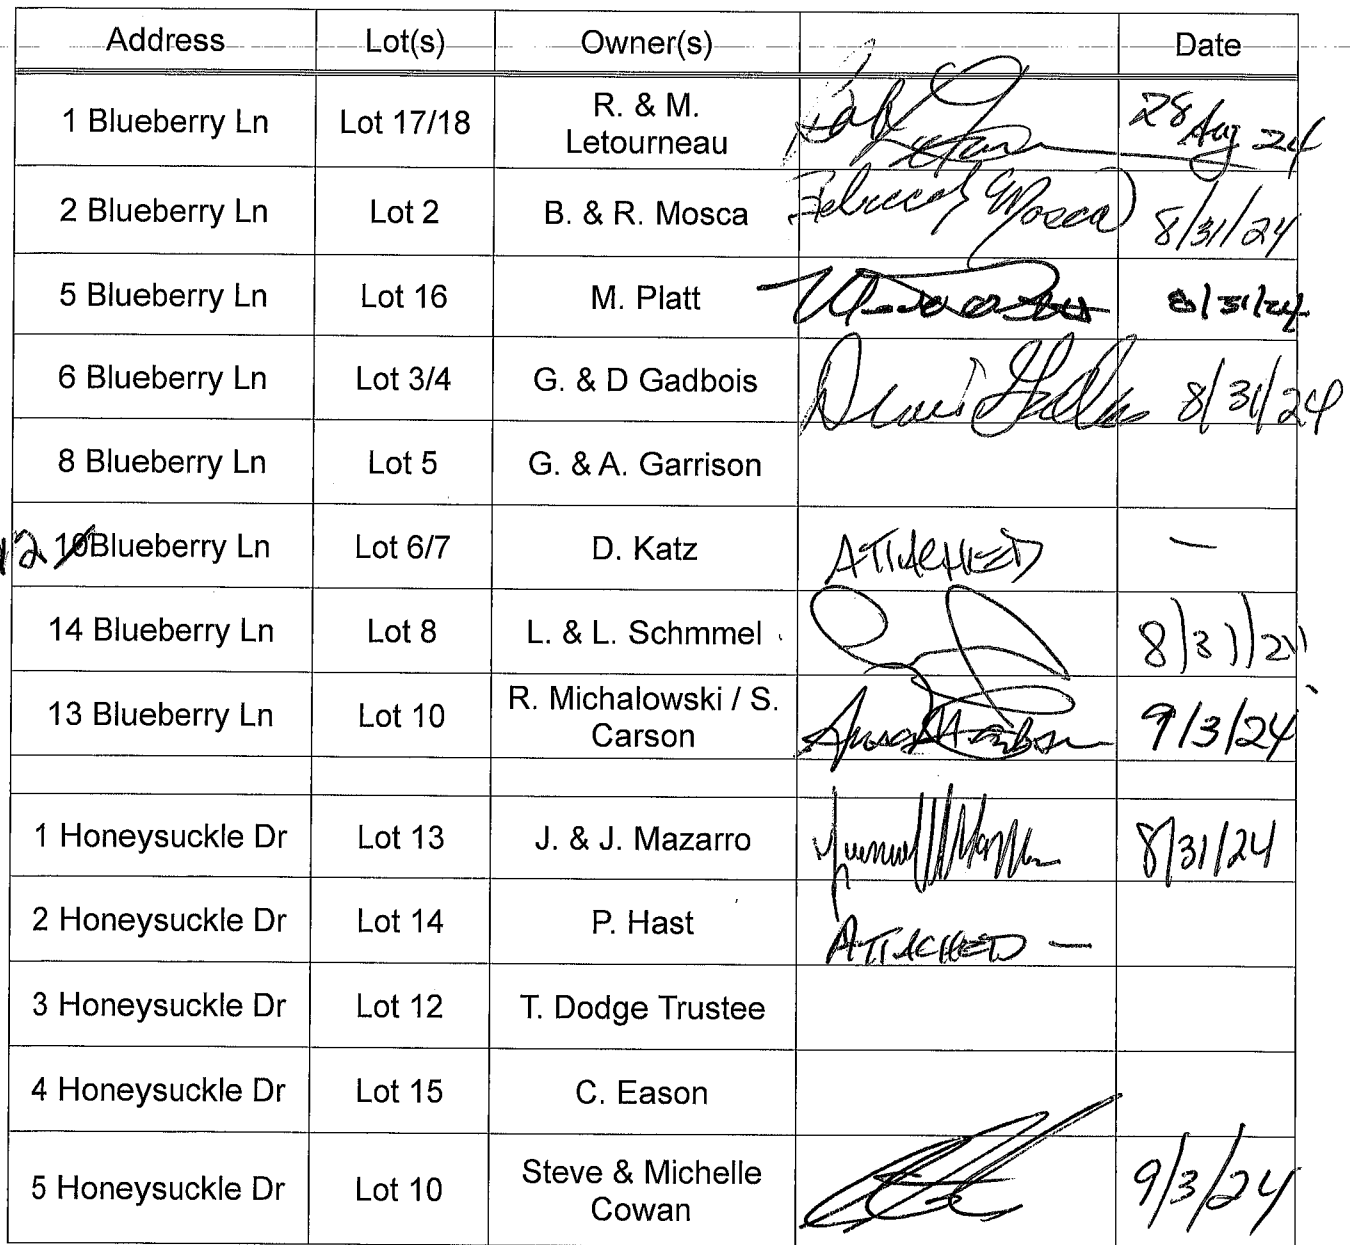 Address Lot(s) Owner(s) Date
1 Blueberry Ln Lot 17/18 R. & M. Letourneau 28 Aug 24
2 Blueberry Ln Lot 2 B. & R. Mosca Rebecca Mosca 8/31/24
5 Blueberry Ln Lot 16 M. Platt 8/31/24
6 Blueberry Ln Lot 3/4 G. & D Gadbois 8/31/24
8 Blueberry Ln Lot 5 G. & A. Garrison
12 10 Blueberry Ln Lot 6/7 D. Katz ATTACHED —
14 Blueberry Ln Lot 8 L. & L. Schmmel 8/31/24
13 Blueberry Ln Lot 10 R. Michalowski / S. Carson 9/3/24
1 Honeysuckle Dr Lot 13 J. & J. Mazarro 8/31/24
2 Honeysuckle Dr Lot 14 P. Hast ATTACHED —
3 Honeysuckle Dr Lot 12 T. Dodge Trustee
4 Honeysuckle Dr Lot 15 C. Eason
5 Honeysuckle Dr Lot 10 Steve & Michelle Cowan 9/3/24